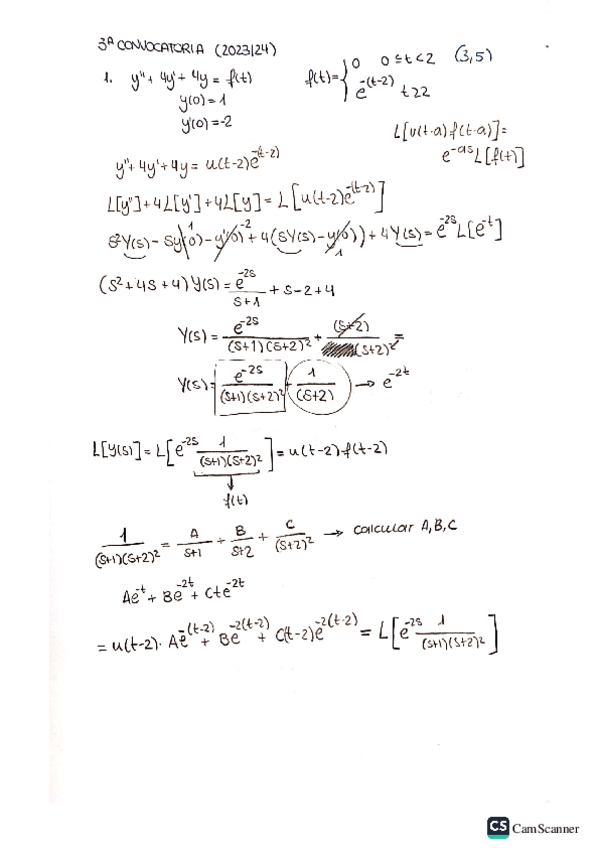 3ª CONVOCATORIA (2023/24)
1. y''+ 4y'+ 4y = f(t)   f(t)= { 0   0≤t<2   (3,5)
y(0)=1   e^-(t-2)   t≥2
y'(0)=-2
L[u(t-a)f(t-a)]=
e^-as L[f(t)]
y''+4y'+4y = u(t-2)e^-(t-2)
L[y'']+4L[y']+4L[y]= L[u(t-2)e^-(t-2)]
s²Y(s) - sy(0) - y'(0) + 4(sY(s)-y(0)) + 4Y(s) = e^-2s L[e^-t]
1   -2   1
(s²+4s+4)Y(s) = e^-2s/(s+1) + s-2+4
Y(s) = e^-2s/((s+1)(s+2)²) + (s+2)/(s+2)² =
Y(s) = e^-2s/((s+1)(s+2)²) + 1/(s+2) → e^-2t
L[Y(s)] = L[e^-2s 1/((s+1)(s+2)²)] = u(t-2)f(t-2)
↓
f(t)
1/((s+1)(s+2)²) = A/(s+1) + B/(s+2) + C/(s+2)² → calcular A,B,C
Ae^-t + Be^-2t + Cte^-2t
= u(t-2)· Ae^-(t-2) + Be^-2(t-2) + C(t-2)e^-2(t-2) = L[e^-2s 1/((s+1)(s+2)²)]
CS CamScanner